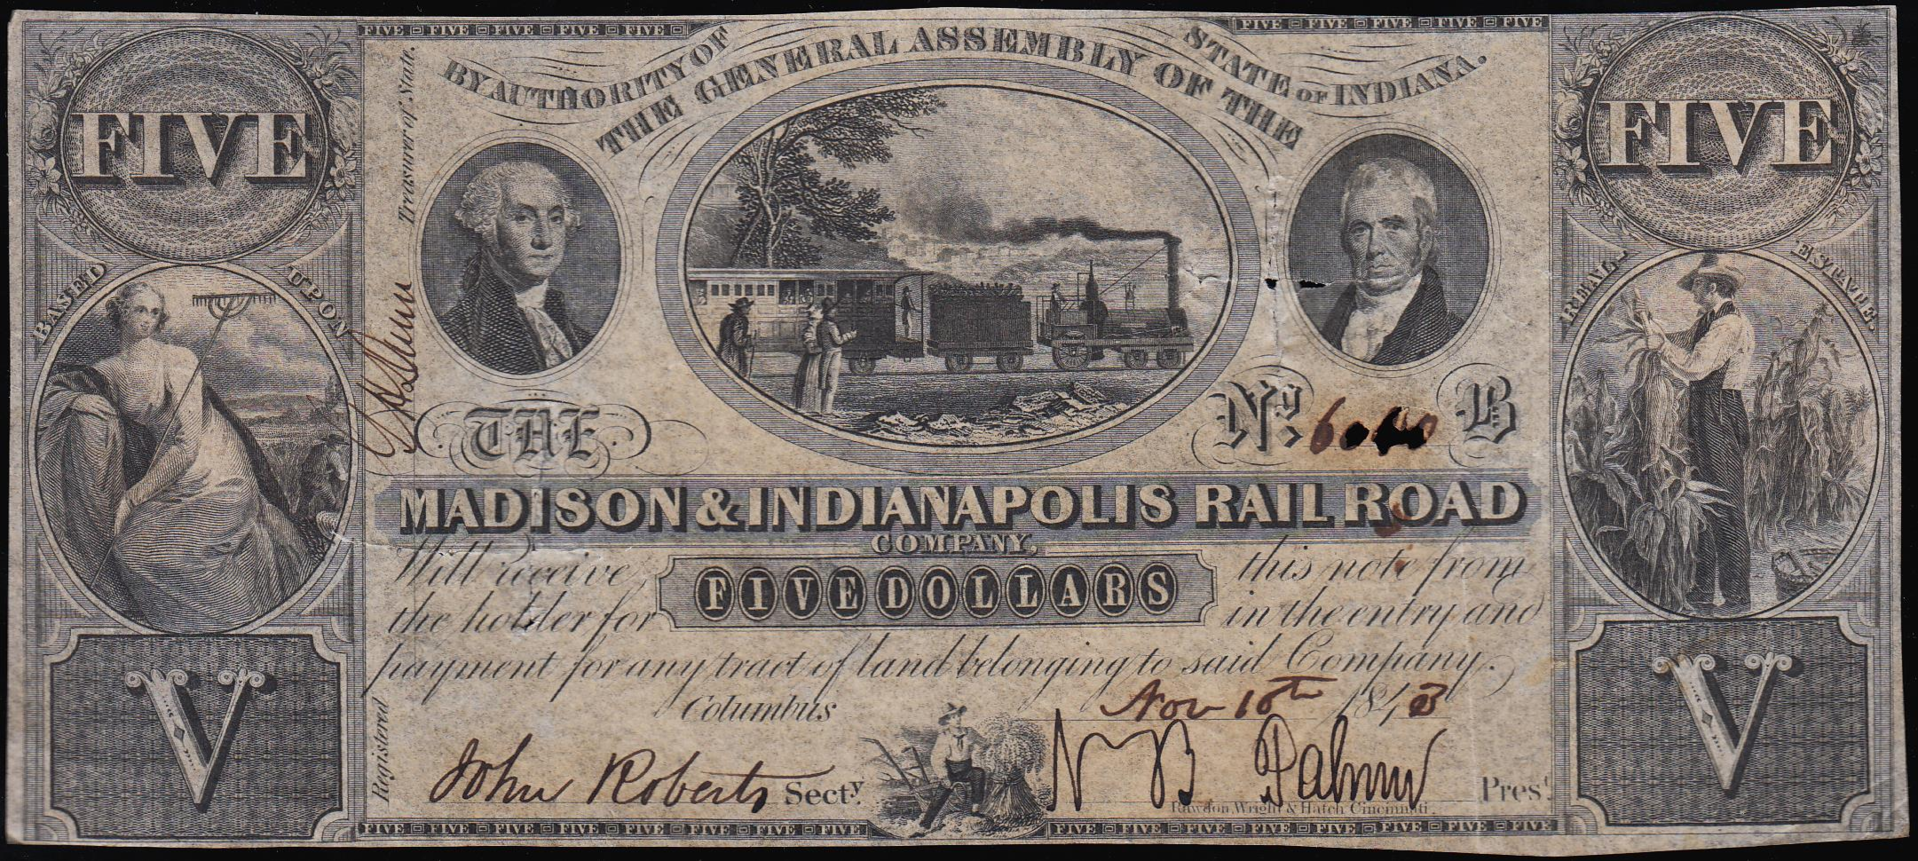 FIVE FIVE FIVE FIVE FIVE
FIVE FIVE FIVE FIVE FIVE
BY AUTHORITY OF
THE GENERAL ASSEMBLY OF THE
STATE OF INDIANA.
FIVE
FIVE
Treasurer of State.
BASED UPON
REAL ESTATE.
THE
No. B
MADISON & INDIANAPOLIS RAIL ROAD
COMPANY,
Will receive this note from
FIVE DOLLARS
the holder for in the entry and
payment for any tract of land belonging to said Company.
Columbus Nov 18th 1843
Registered
John Roberts Secty.
N B Palmer Prest.
Rawdon, Wright & Hatch Cincinnati.
V
V
FIVE FIVE FIVE FIVE FIVE FIVE FIVE FIVE
FIVE FIVE FIVE FIVE FIVE FIVE FIVE FIVE